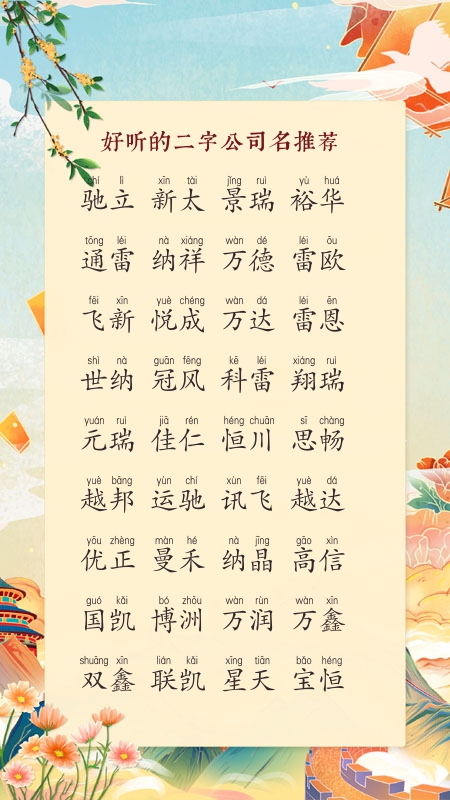 好听的二字公司名推荐
chí lì xīn tài jǐng ruì yù huá
驰立 新太 景瑞 裕华
tōng léi nà xiáng wàn dé léi ōu
通雷 纳祥 万德 雷欧
fēi xīn yuè chéng wàn dá léi ēn
飞新 悦成 万达 雷恩
shì nà guān fēng kē léi xiáng ruì
世纳 冠风 科雷 翔瑞
yuán ruì jiā rén héng chuān sī chàng
元瑞 佳仁 恒川 思畅
yuè bāng yùn chí xùn fēi yuè dá
越邦 运驰 讯飞 越达
yōu zhèng màn hé nà jīng gāo xìn
优正 曼禾 纳晶 高信
guó kǎi bó zhōu wàn rùn wàn xīn
国凯 博洲 万润 万鑫
shuāng xīn lián kǎi xīng tiān bǎo héng
双鑫 联凯 星天 宝恒